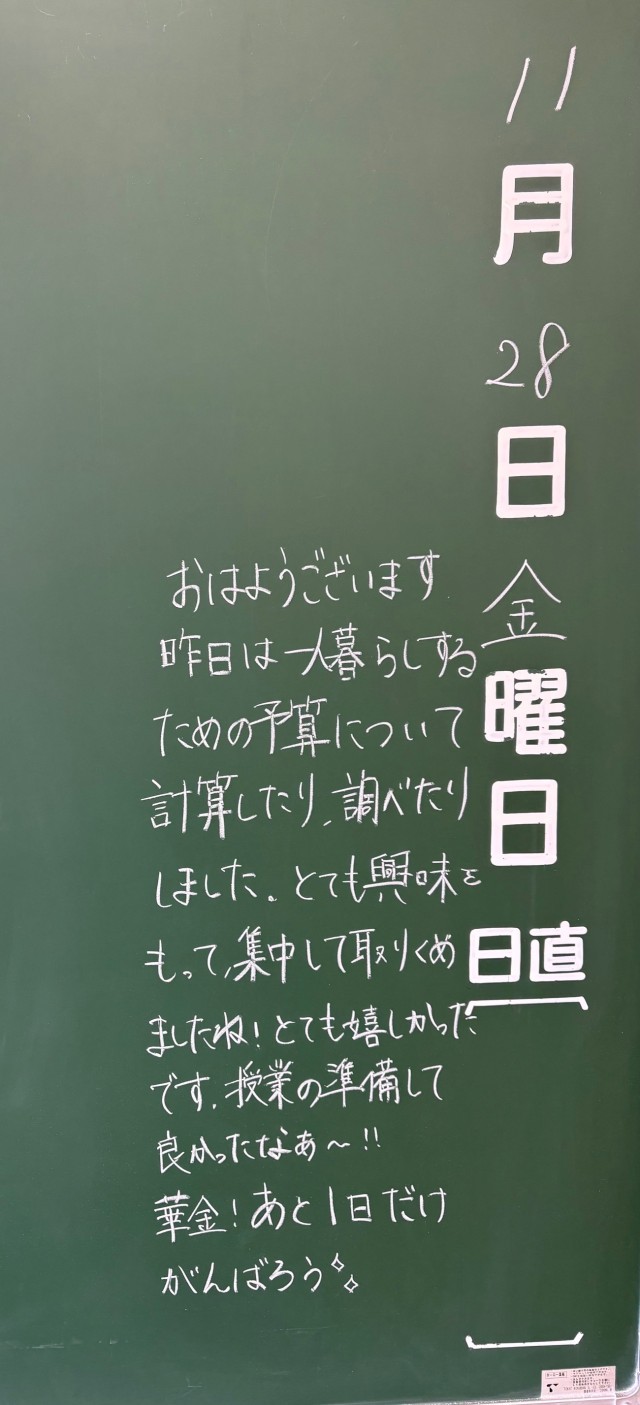 11月28日金曜日
日直
おはようございます
昨日は一人暮らしする
ための予算について
計算したり、調べたり
しました。とても興味を
もって、集中して取りくめ
ましたね！とても嬉しかった
です。授業の準備して
良かったなぁ〜!!
華金！あと1日だけ
がんばろう